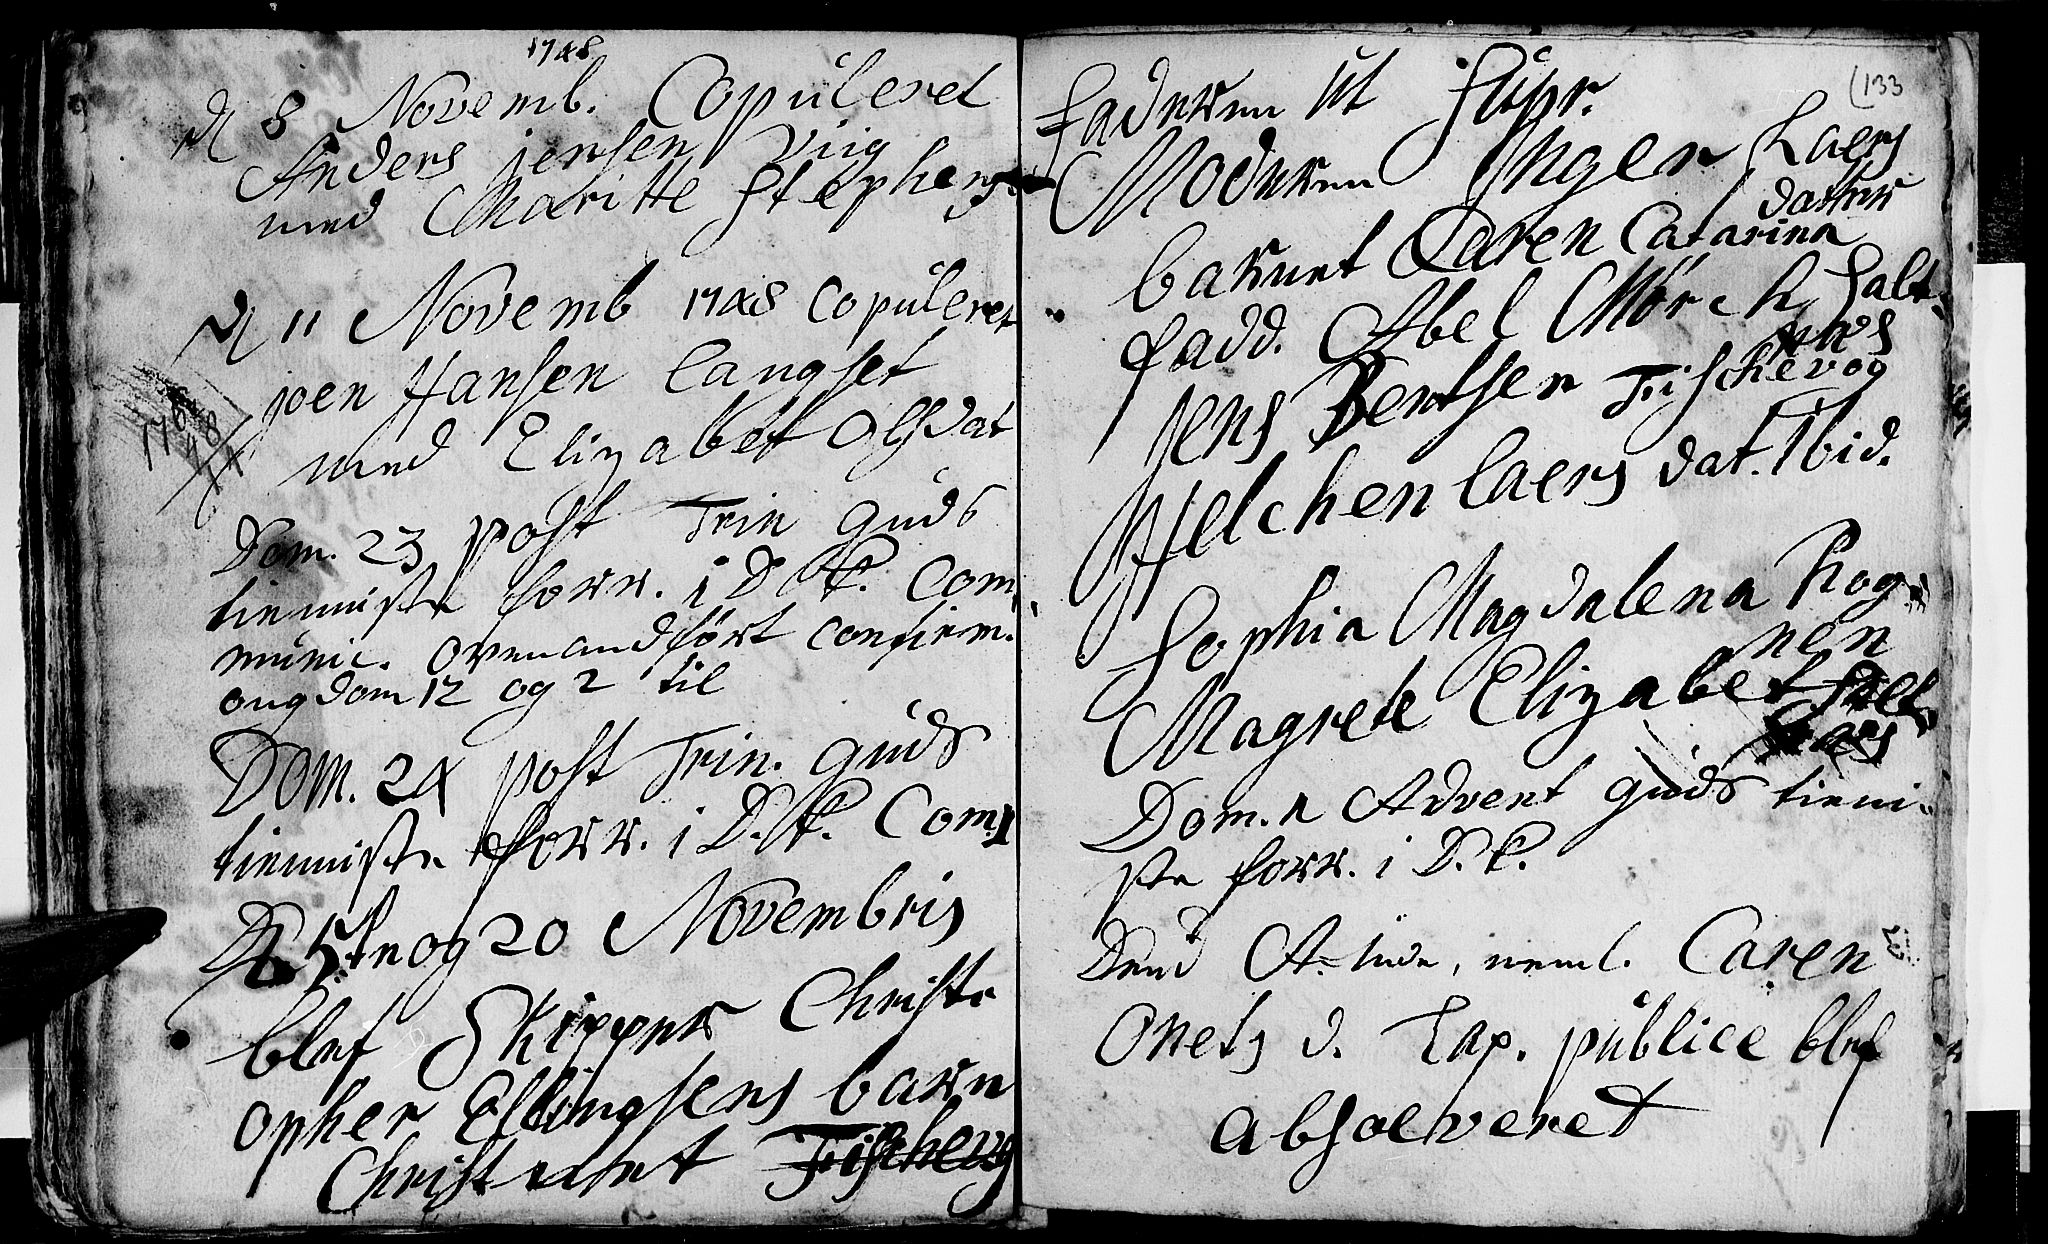 1748
d 8 Novemb. Copuleret
Anders jensen Viig
med Maritte Stephens
d 11 Novemb 1748 Copuleret
joen Hansen Langset
med Elizabet Olsdat
1748
Dom. 23 post Trin Guds
tienniste forr. i D.K. Com
munic. ovenandført confirm.
ongdom 12 og 2 til
Dom. 24 post Trin. Guds
tienniste forr. i D.K. Com:
og 20 Novembris
blef Skipper Christo
opher Ellingsens barn
Christnet Fischevog
(133
Faderen ut supr.
Moderen Inger Laers
datter
barnet Caren Catarina
fadd. Abel Mörch Salt
nes
jens Bentsen Fischevog
Helchen Laers dat. Ibid.
Sophia Magdalena Rog
nen
Magrete Elizabet
Dom. 1 Advent Guds tieni
ste forr. i D.K.
Dend A. inde, neml. Caren
Onets d. Lap. publice blef
absolveret